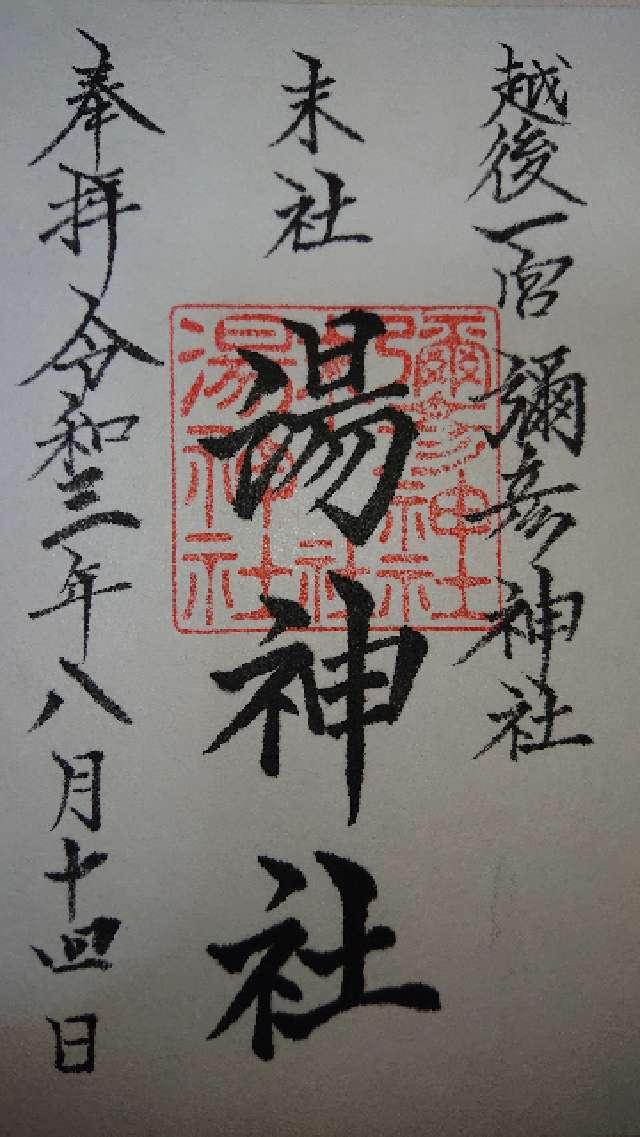 越後一宮 彌彦神社
末社
湯神社
奉拝 令和三年八月十四日
彌彦神社
末社
湯神社